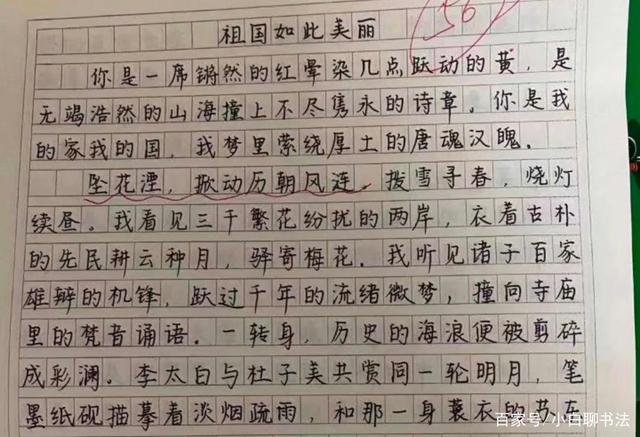 祖国如此美丽
56
你是一席锵然的红晕染几点跃动的黄，是
无竭浩然的山海撞上不尽隽永的诗章。你是我
的家我的国，我梦里萦绕厚土的唐魂汉魄。
坠花湮，掀动历朝风涟。拨雪寻春，烧灯
续昼。我看见三千繁花纷扰的两岸，衣着古朴
的先民耕云种月，驿寄梅花。我听见诸子百家
雄辩的机锋，跃过千年的流绪微梦，撞向寺庙
里的梵音诵语。一转身，历史的海浪便被剪碎
成彩澜。李太白与杜子美共赏同一轮明月，笔
墨纸砚描摹着淡烟疏雨，和那一身蓑衣的苏东
百家号/小白聊书法